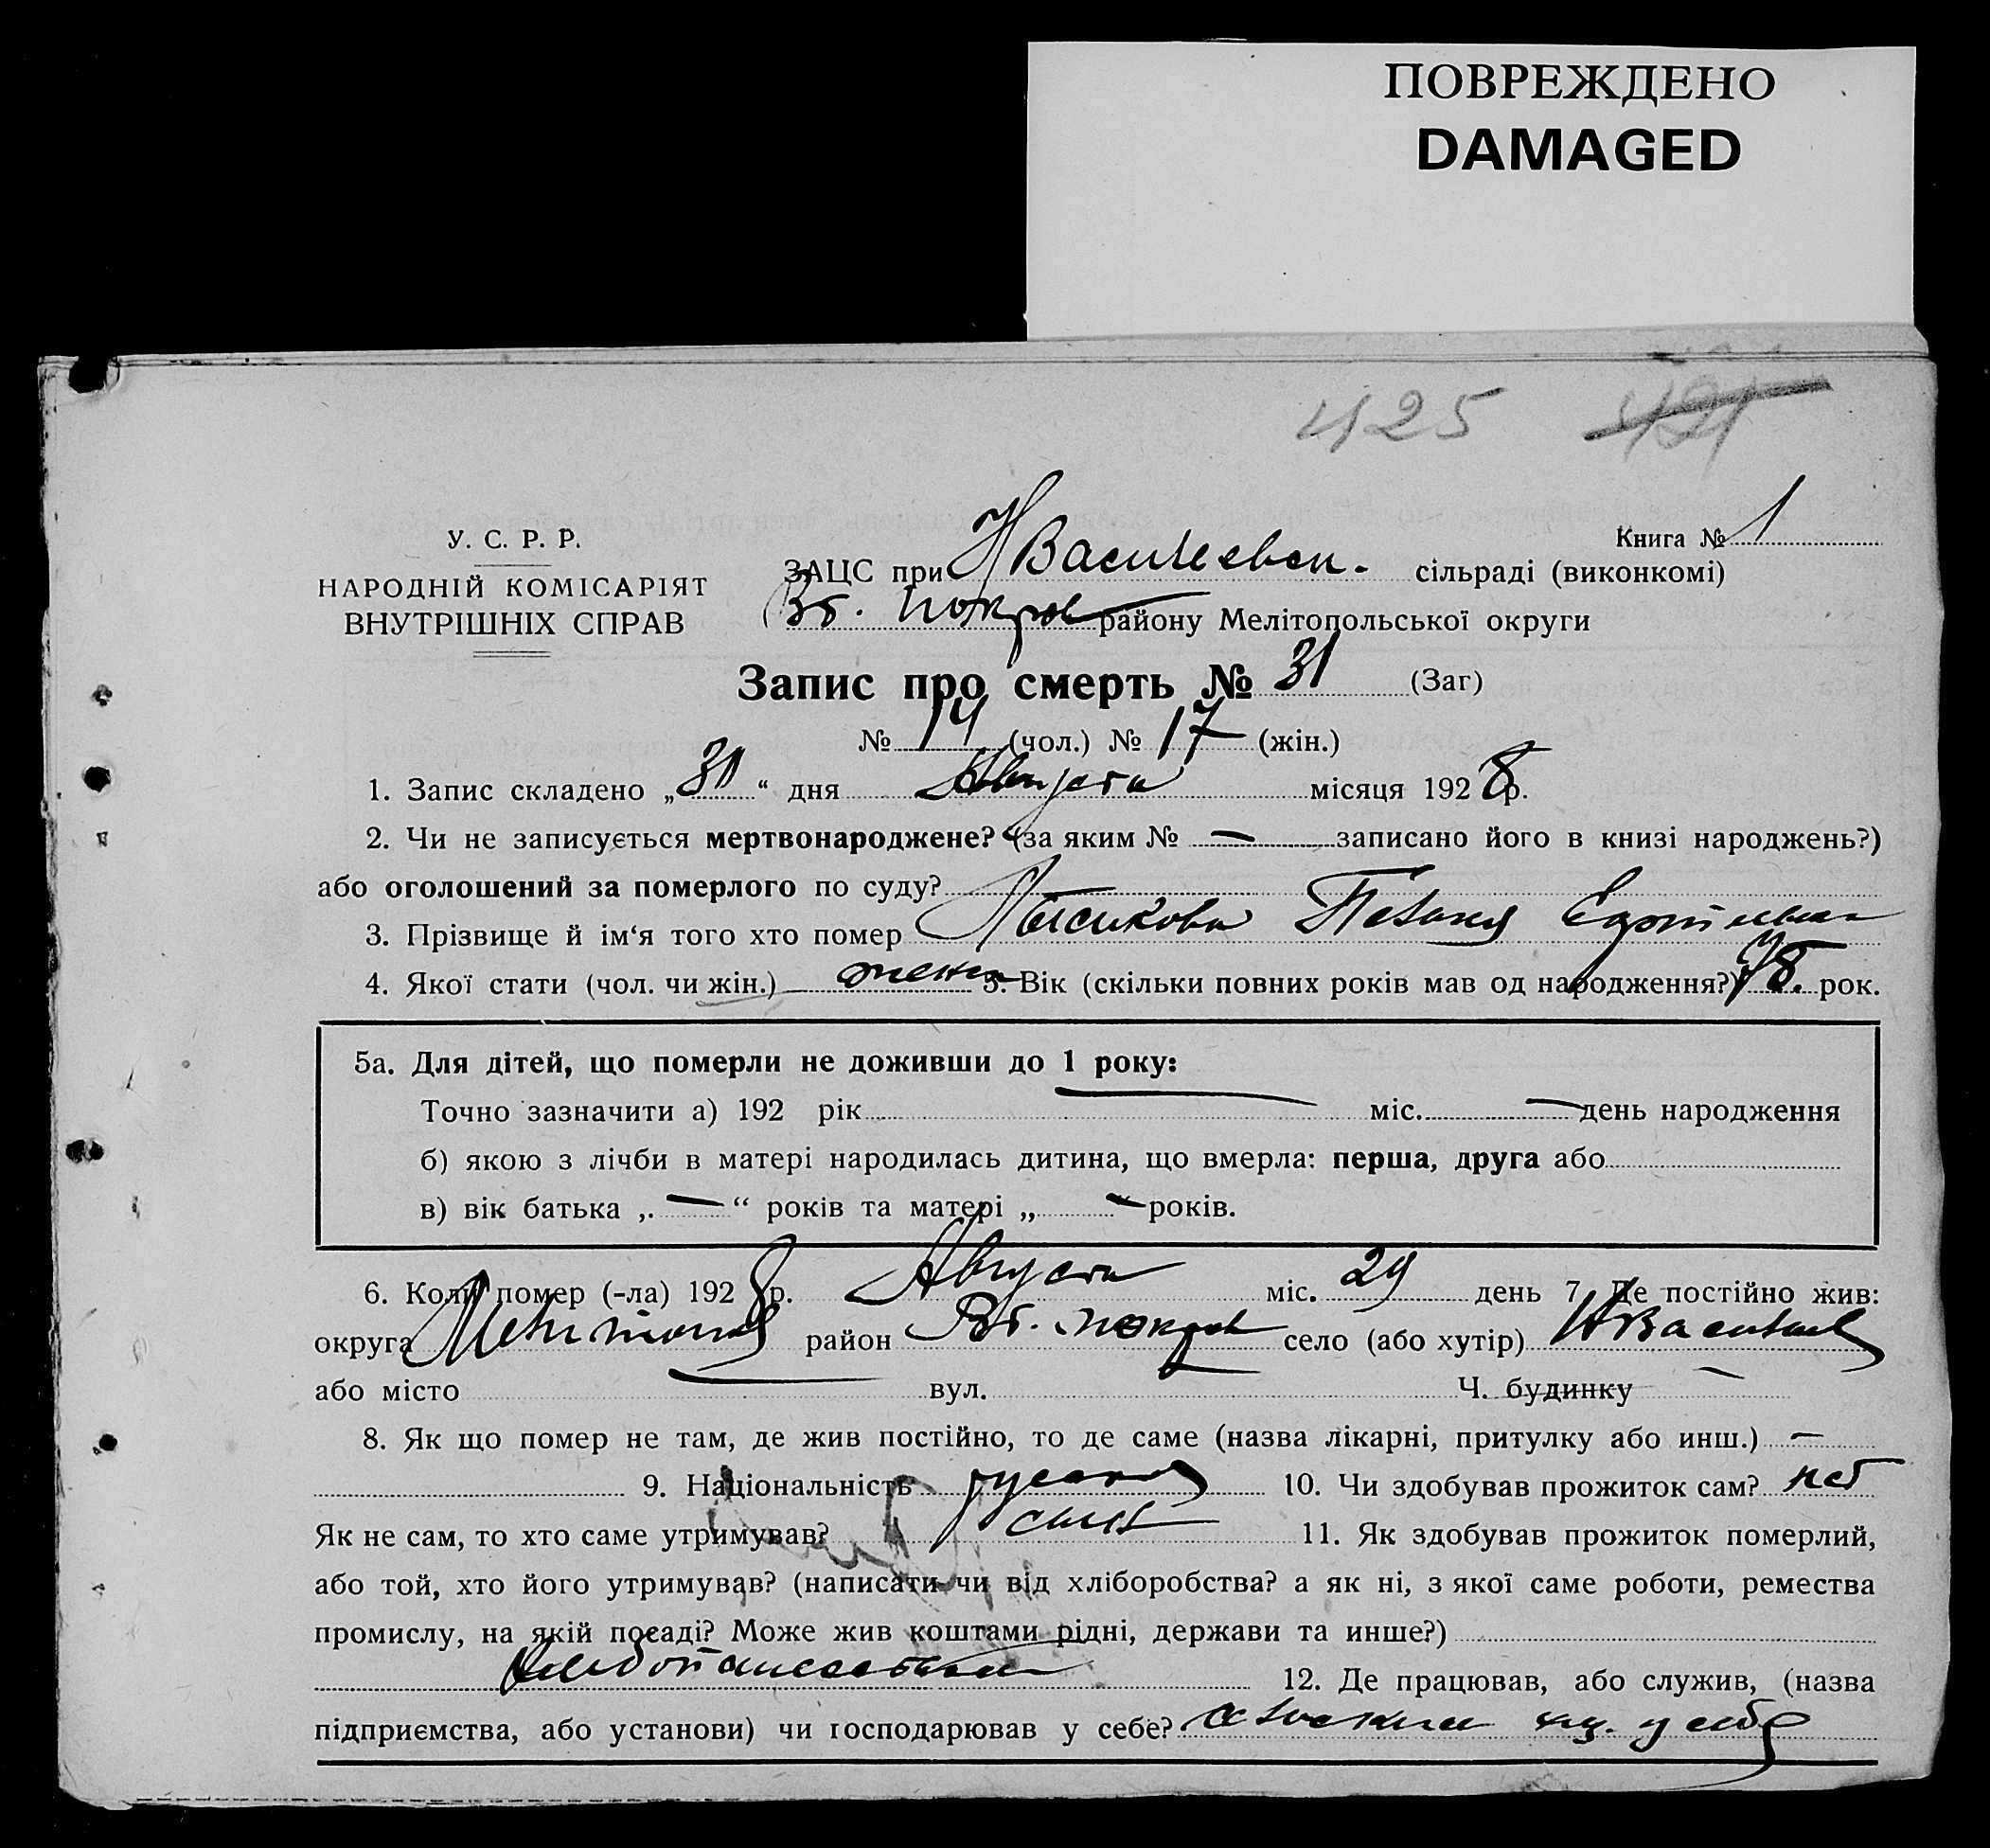 ПОВРЕЖДЕНО
DAMAGED
425 421
У. С. Р. Р.
НАРОДНІЙ КОМІСАРІЯТ
ВНУТРІШНІХ СПРАВ
Книга № 1
ЗАЦС при НВасилевск. сільраді (виконкомі)
Вт. Покров району Мелітопольської округи
Запис про смерть № 31 (Заг)
№ 14 (чол.) № 17 (жін.)
1. Запис складено „30“ дня Августа місяця 1928 р.
2. Чи не записується мертвонароджене? (за яким № — записано його в книзі народжень?)
або оголошений за померлого по суду?
3. Прізвище й ім‘я того хто помер
4. Якої стати (чол. чи жін.) 5. Вік (скільки повних років мав од народження?) 78. рок.
5а. Для дітей, що померли не доживши до 1 року:
Точно зазначити а) 192 рік — міс. — день народження
б) якою з лічби в матері народилась дитина, що вмерла: перша, друга або
в) вік батька „. — “ років та матері „ — “ років.
6. Коли помер (-ла) 1928 р. Августа міс. 29 день 7. Де постійно жив:
округа Мелитопол район Вт. покров село (або хутір) НВасильев
або місто — вул. — Ч. будинку —
8. Як що помер не там, де жив постійно, то де саме (назва лікарні, притулку або инш.) —
9. Національність русская 10. Чи здобував прожиток сам? нет
Як не сам, то хто саме утримував? сын 11. Як здобував прожиток померлий,
або той, хто його утримував? (написати чи від хліборобства? а як ні, з якої саме роботи, ремества
промислу, на якій посаді? Може жив коштами рідні, держави та инше?)
хлебопашество 12. Де працював, або служив, (назва
підприємства, або установи) чи господарював у себе? у себя